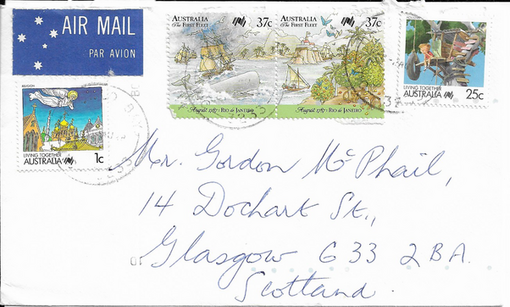 AIR MAIL
PAR AVION
AUSTRALIA
The First Fleet
37c
August 1787 - Rio de Janeiro
AUSTRALIA
The First Fleet
37c
August 1787 - Rio de Janeiro
LIVING TOGETHER
AUSTRALIA 25c
RELIGION
LIVING TOGETHER
AUSTRALIA 1c
Mr. Gordon McPhail,
14 Dochart St.,
Glasgow G33 2BA.
Scotland.